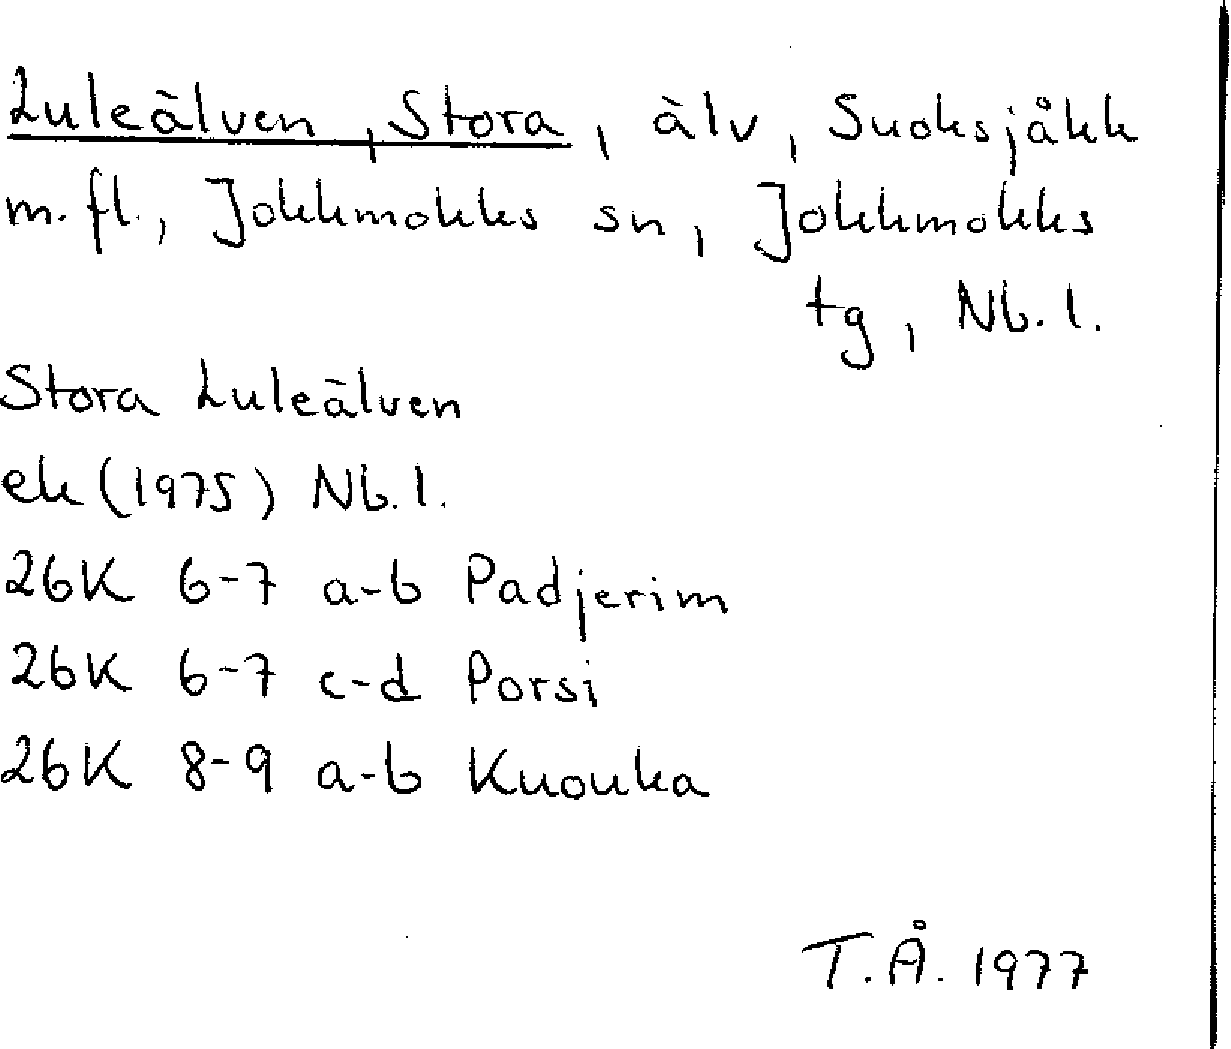 Luleälven, Stora, älv, Suoksjåkk
m. fl., Jokkmokks sn, Jokkmokks
tg, Nb. l.
Stora Luleälven
ek (1975) Nb. l.
26K 6-7 a-b Padjerim
26K 6-7 c-d Porsi
26K 8-9 a-b Kuouka
T.Å. 1977